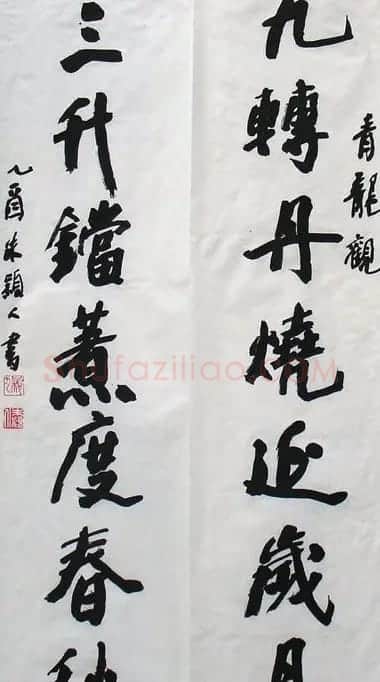 青龍觀
九轉丹燒近歲月
三升鐺煮度春秋
乙酉朱穎人書
Shufaziliao.COM